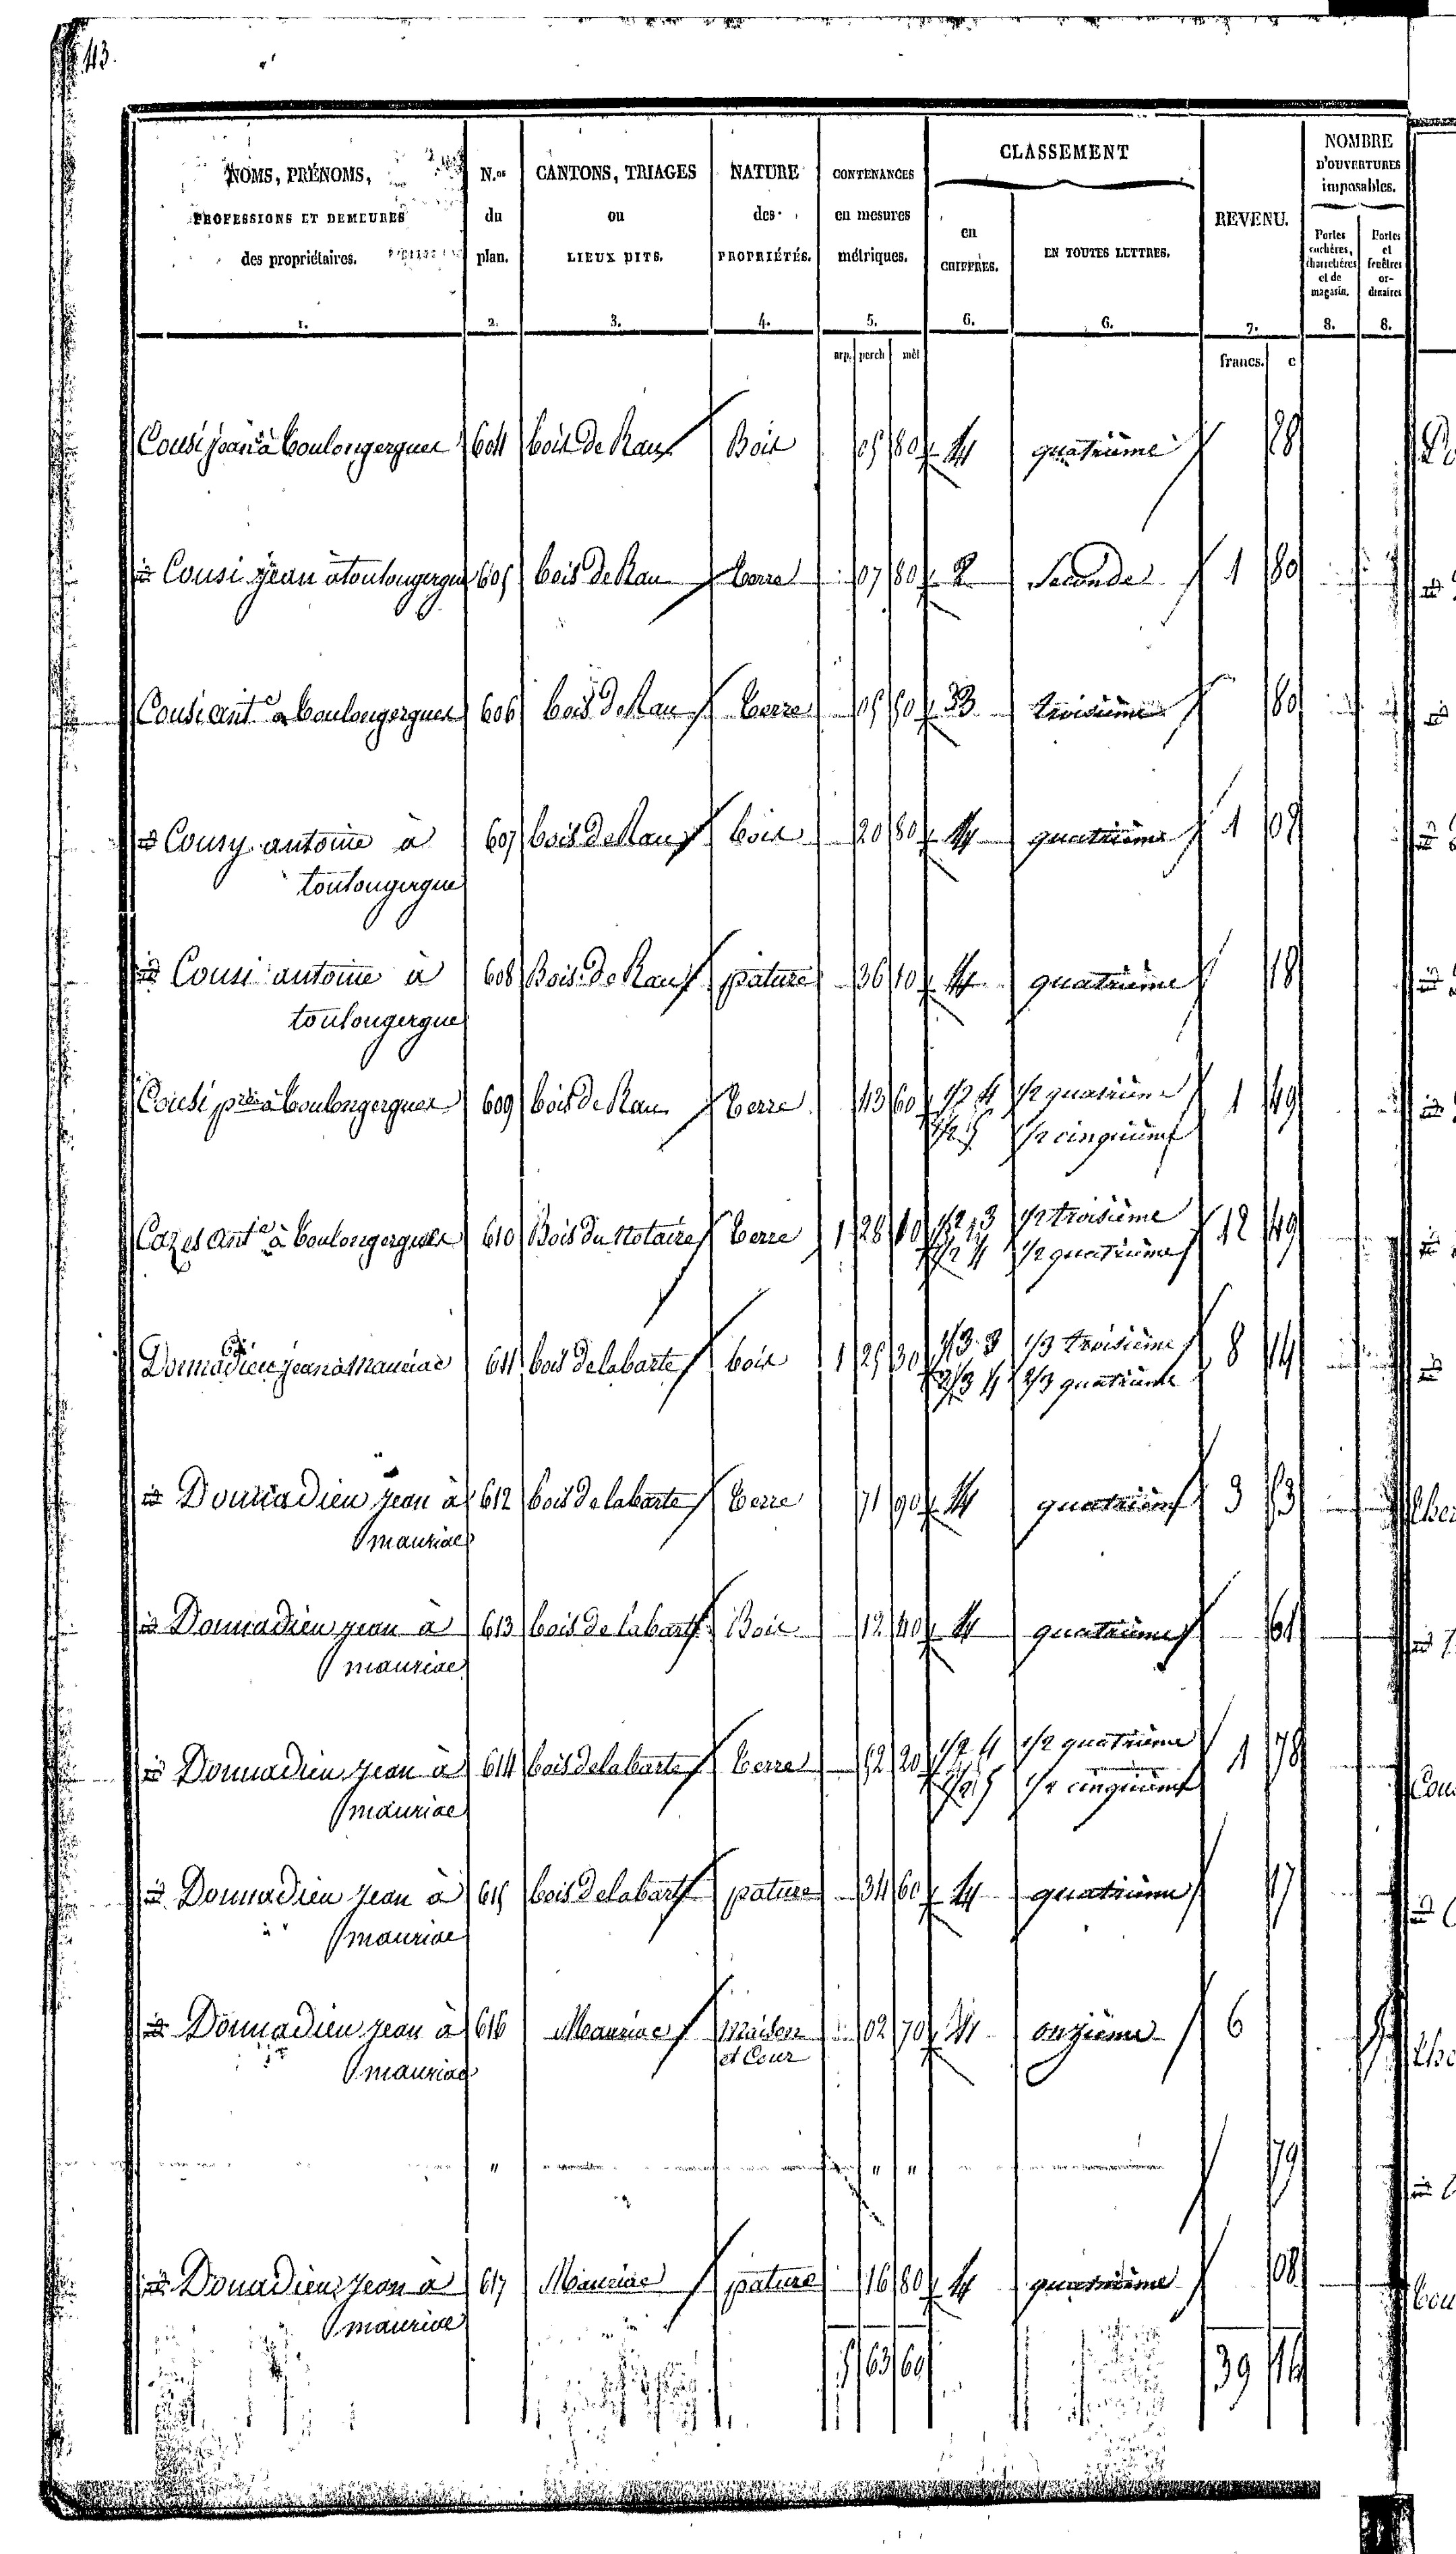 43.
NOMS, PRÉNOMS,
PROFESSIONS ET DEMEURES
des propriétaires.
1.
N.os
du
plan.
2.
CANTONS, TRIAGES
ou
LIEUX DITS.
3.
NATURE
des
PROPRIÉTÉS.
4.
CONTENANCES
en mesures
métriques.
5.
CLASSEMENT
en
CHIFFRES.
6.
EN TOUTES LETTRES.
6.
REVENU.
7.
NOMBRE
D'OUVERTURES
imposables.
Portes
cochères,
charretières
et de
magasin.
8.
Portes
et
fenêtres
or-
dinaires
8.
arp. perch mèt francs. c
Cousi jean à toulongergues 604 bois de Rau Bois 05 80 4 quatrième 28
id Cousi jean à toulongergue 605 bois de Rau terre 07 80 2 Seconde 1 80
Cousi ant.e a toulongergues 606 bois de Rau terre 05 50 3 troisième 80
id Cousy antoine à 607 bois de Rau bois 20 80 4 quatrième 1 02
toulongergue
id Cousi antoine à 608 Bois de Rau pature 36 10 4 quatrième 18
toulongergue
Cousi pre à toulongergues 609 bois de Rau terre 43 60 1/2 4 1/2 quatrième 1 49
1/2 5 1/2 cinquième
Cazes ant.e à toulongergues 610 Bois du Notaire terre 1 28 10 1/2 3 1/2 troisième 12 49
1/2 4 1/2 quatrième
Donnadieu jean à Mauriac 611 bois de labarte bois 1 25 30 1/3 3 1/3 troisième 8 14
2/3 4 2/3 quatrième
id Donnadieu jean à 612 bois de labarte terre 71 90 4 quatrième 3 53
mauriac
id Donnadieu jean à 613 bois de labarte Bois 12 40 4 quatrième 61
mauriac
id Donnadieu jean à 614 bois de labarte terre 52 20 1/2 4 1/2 quatrième 1 78
1/2 5 1/2 cinquième
mauriac
id Donnadieu jean à 615 bois de labarte pature 34 60 4 quatrième 17
mauriac
id Donnadieu jean à 616 Mauriac Maison 02 70 11 onzième 6
et Cour
mauriac
" " " 79
id Donadieu jean à 617 Mauriac pature 16 80 4 quatrième 08
mauriac
5 63 60 39 16